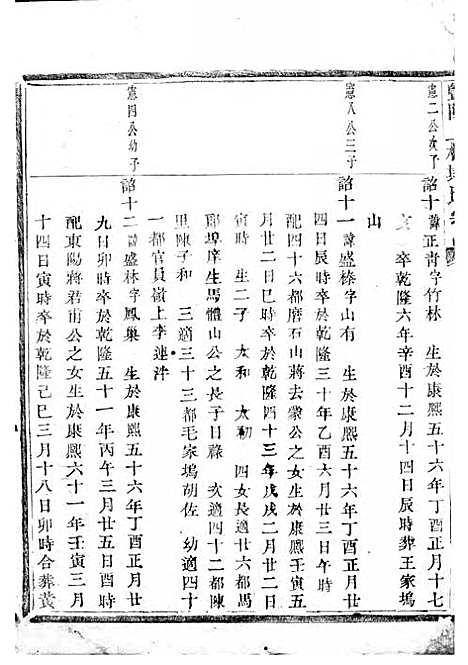 憲二公次子
詔十 諱正青字竹林 生於康熙五十六年丁酉正月十七
卒乾隆六年辛酉十二月十四日辰時葬王家塢
山
憲八公三子
詔十一 諱盛榛字山有 生於康熙五十六年丁酉正月廿
四日辰時卒於乾隆三十年乙酉六月三日巳時
配四十六都磨石山蔣去蒙公之女生於康熙壬寅五
月廿二日巳時卒於乾隆四十三年戊戌二月廿二日
寅時 生二子 大和 大勳 四女長適六都馮
郎埠庠生馬體山公之長子日祿 次適四十二都陳
里陳子和 三適三十三都毛家塢胡佐 幼適四十
一都官員嶺上李連泮
憲四公幼子
詔十二 諱盛林字鳳巢 生於康熙五十六年丁酉正月廿
九日卯時卒於乾隆五十一年丙午三月廿五日酉時
配東陽蔣君甫公之女生於康熙六十一年壬寅三月
十四日寅時卒於乾隆己巳三月十八日卯時合葬黃